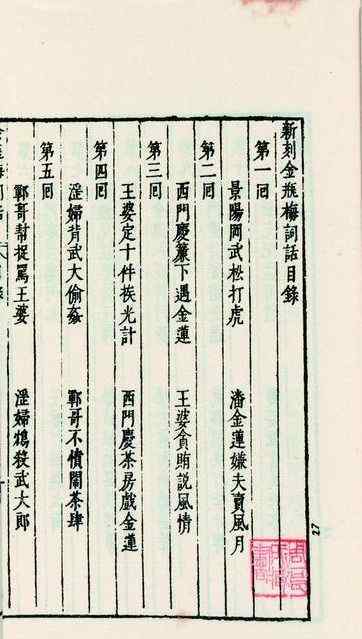 新刻金瓶梅詞話目錄
第一回
景陽岡武松打虎 潘金蓮嫌夫賣風月
第二回
西門慶簾下遇金蓮 王婆貪賄說風情
第三回
王婆定十件挨光計 西門慶茶房戲金蓮
第四回
淫婦背武大偷奸 鄆哥不憤鬧茶肆
第五回
鄆哥幫捉罵王婆 淫婦鴆殺武大郎
27